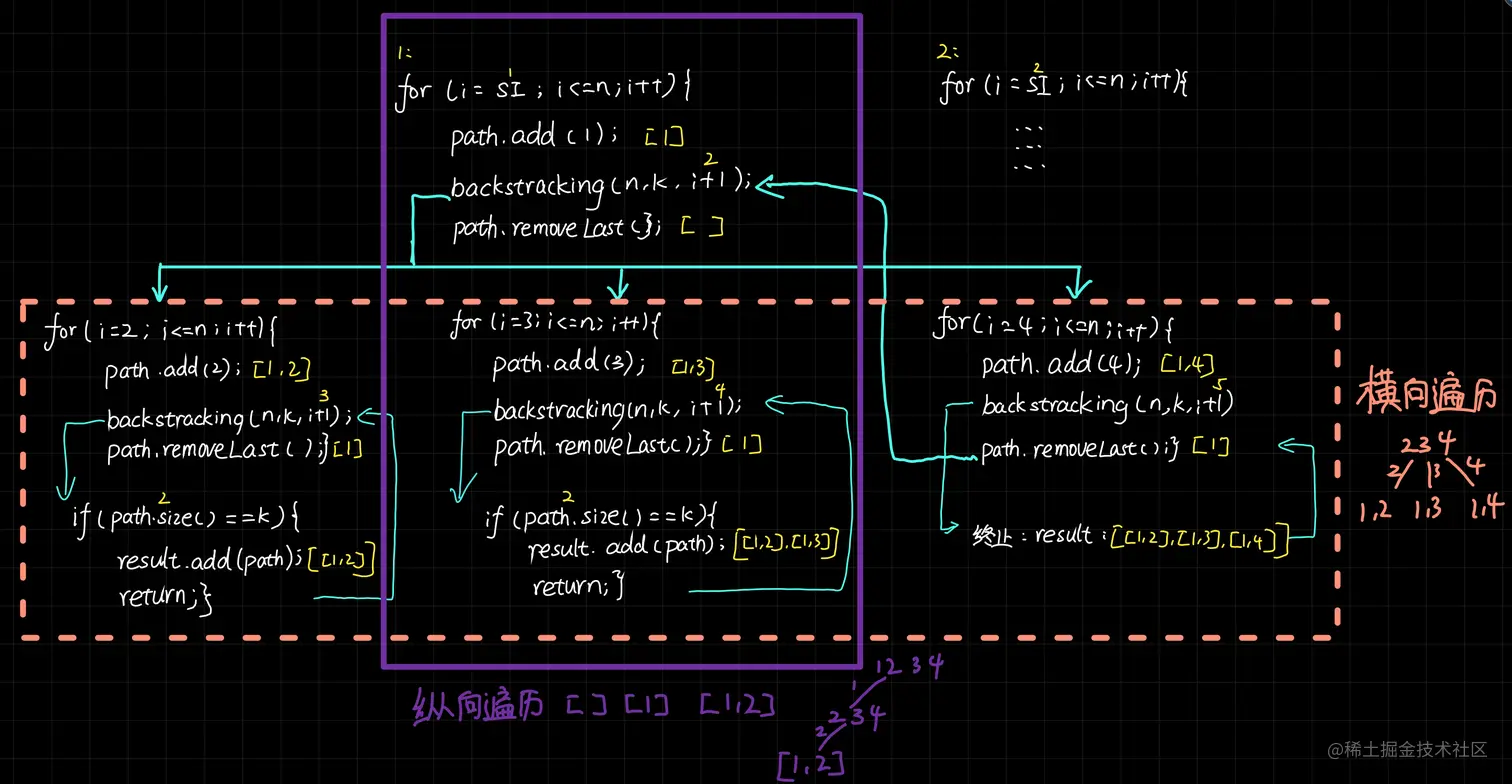 1:
1
for (i = SI ; i<=n ; i++) {
path.add (1) ; [1]
2
backstracking(n,k, i+1);
path.removeLast(}; [ ]
2:
2
for (i = SI ; i<=n ; i++){
...
...
...
for (i=2 ; i<=n ; i++){
path.add(2); [1,2]
3
backstracking(n,k, i+1);
path.removeLast();}[1]
2
if (path.size() ==k) {
result.add(path);[[1,2]]
return;}
for (i=3;i<=n; i++){
path.add(3); [1,3]
4
backstracking(n,k, i+1);
path.removeLast();} [1]
2
if (path.size() ==k){
result.add(path);[[1,2],[1,3]]
return;}
for(i=4;i<=n;i++){
path.add(4); [1,4]
5
backstracking(n,k,i+1)
path.removeLast();} [1]
终止: result:[[1,2],[1,3],[1,4]]
横向遍历
2 3 4
2 3 4
1,2 1,3 1,4
纵向遍历 [ ] [1] [1,2]
1 2 3 4
1
2 3 4
2
[1,2]
@稀土掘金技术社区